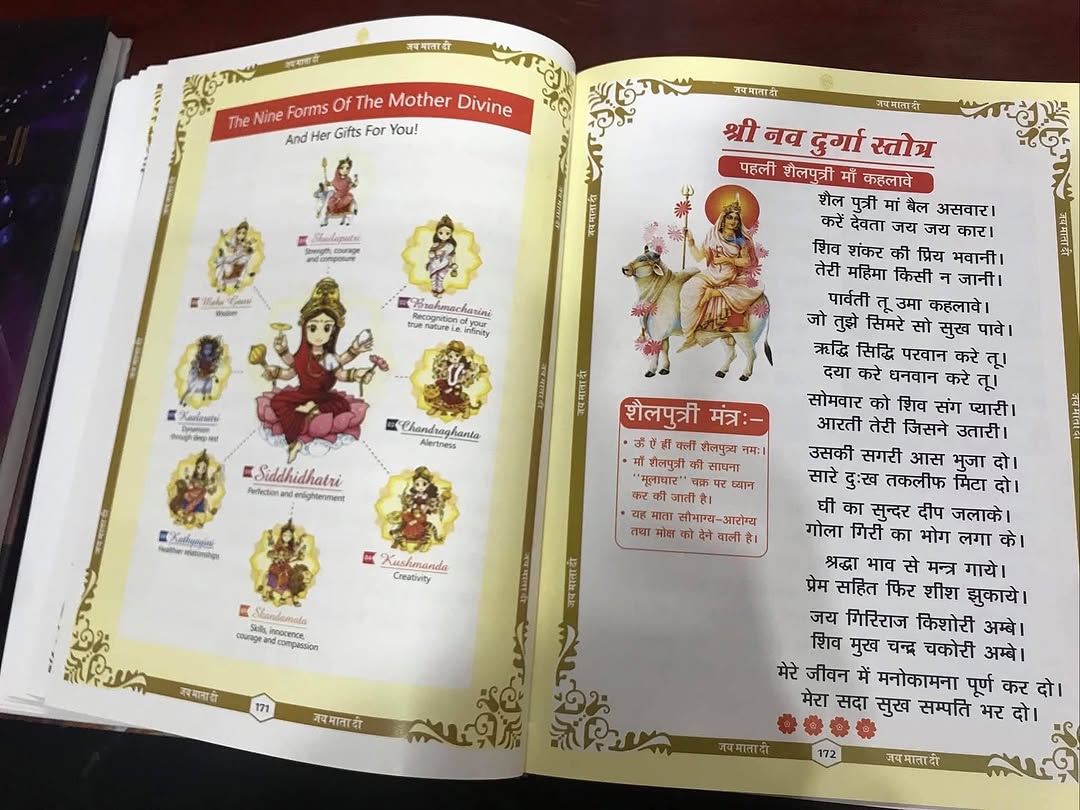 जय माता दी
जय माता दी
The Nine Forms Of The Mother Divine
And Her Gifts For You!
Shailaputri
Strength, courage
and composure
Maha Gauri
Wisdom
Brahmacharini
Recognition of your
true nature i.e. infinity
Kaalaratri
Dynamism
through deep rest
Chandraghanta
Alertness
Siddhidhatri
Perfection and enlightenment
Kathyayini
Healthier relationships
Kushmanda
Creativity
Skandamata
Skills, innocence,
courage and compassion
जय माता दी
जय माता दी
जय माता दी
जय माता दी
जय माता दी
जय माता दी
जय माता दी
171
जय माता दी
जय माता दी
जय माता दी
श्री नव दुर्गा स्तोत्र
पहली शैलपुत्री माँ कहलावे
शैल पुत्री मां बैल असवार।
करें देवता जय जय कार।
शिव शंकर की प्रिय भवानी।
तेरी महिमा किसी न जानी।
पार्वती तू उमा कहलावे।
जो तुझे सिमरे सो सुख पावे।
ऋद्धि सिद्धि परवान करे तू।
दया करे धनवान करे तू।
सोमवार को शिव संग प्यारी।
आरती तेरी जिसने उतारी।
उसकी सगरी आस भुजा दो।
सारे दुःख तकलीफ मिटा दो।
घी का सुन्दर दीप जलाके।
गोला गिरी का भोग लगा के।
श्रद्धा भाव से मन्त्र गाये।
प्रेम सहित फिर शीश झुकाये।
जय गिरिराज किशोरी अम्बे।
शिव मुख चन्द्र चकोरी अम्बे।
मेरे जीवन में मनोकामना पूर्ण कर दो।
मेरा सदा सुख सम्पति भर दो।
शैलपुत्री मंत्रः–
• ऊँ ऐं ह्रीं क्लीं शैलपुत्र्य नमः।
• माँ शैलपुत्री की साधना
‘‘मूलाधार’’ चक्र पर ध्यान
कर की जाती है।
• यह माता सौभाग्य-आरोग्य
तथा मोक्ष को देने वाली है।
जय माता दी
जय माता दी
जय माता दी
जय माता दी
जय माता दी
172
जय माता दी